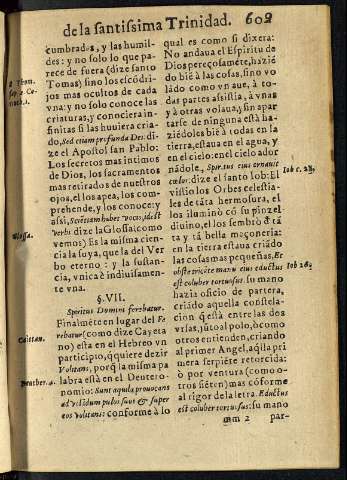 de la santissima Trinidad. 602
cumbrados, y las humil-
des: y no solo lo que pa-
rece de fuera (dize santo
Tomas) sino los escõdri-
jos mas ocultos de cada
vna: y no solo conoce las
criaturas, y conociera in-
finitas si las huuiera cria-
do, Sed etiam profunda Dei: di-
ze el Apostol san Pablo:
Los secretos mas intimos
de Dios, los sacramentos
mas retirados de nuestros
ojos, el los apea, los com-
prehende, y los conoce: y
assi, Scientiam habet vocis, id est
verbi: dize la Glossa (como
vemos) Es la misma cien-
cia la suya, que la del Ver-
bo eterno: y la sustan-
cia, vnica è indiuisamente
vna.
§. VII.
Spiritus Domini ferebatur.
Finalmẽte en lugar del Fe-
rebatur (como dize Cayeta
no) està en el Hebreo vn
participio, q̃ quiere dezir
Volitans, porq̃ la misma pa
labra està en el Deutero-
nomio: Sicut aquila prouocans
ad volãdum pullos suos & super
eos volitans: conforme à lo
qual es como si dixera:
No andaua el Espiritu de
Dios pereçosamẽte, haziẽ
do biẽ à las cosas, sino vo
lado como vn aue, à to-
das partes assistia, à vna
y à otras volaua, sin apar
tarse de ninguna està ha
ziẽdoles biẽ à todas en la
tierra, estaua en el agua, y
en el cielo: en el cielo ador
nãdole, Spiritus eius ornauit
cœlos: dize el santo Iob: El
vistio los Orbes celestia-
les de tãta hermosura, el
los iluminò cõ su pinzel
diuino, el los sembrò de tã
ta y tã bella maçoneria:
en la tierra estaua criãdo
las cosas mas pequeñas, Et
obstetricãte manu eius eductus
est coluber tortuosus: su mano
hazia oficio de partera,
criãdo aquella constela-
cion q̃ està entre las dos
vrsas, jũto al polo, ò como
otros entienden, criando
al primer Angel, aq̃lla pri
mera serpiẽte retorcida:
ò por ventura (como o-
tros siẽten) mas cõforme
al rigor de la letra. Eductus
est coluber tortuosus: su mano
mm 2 par-
Glossa.
Caietan.
Iob c. 28.
Iob 26.